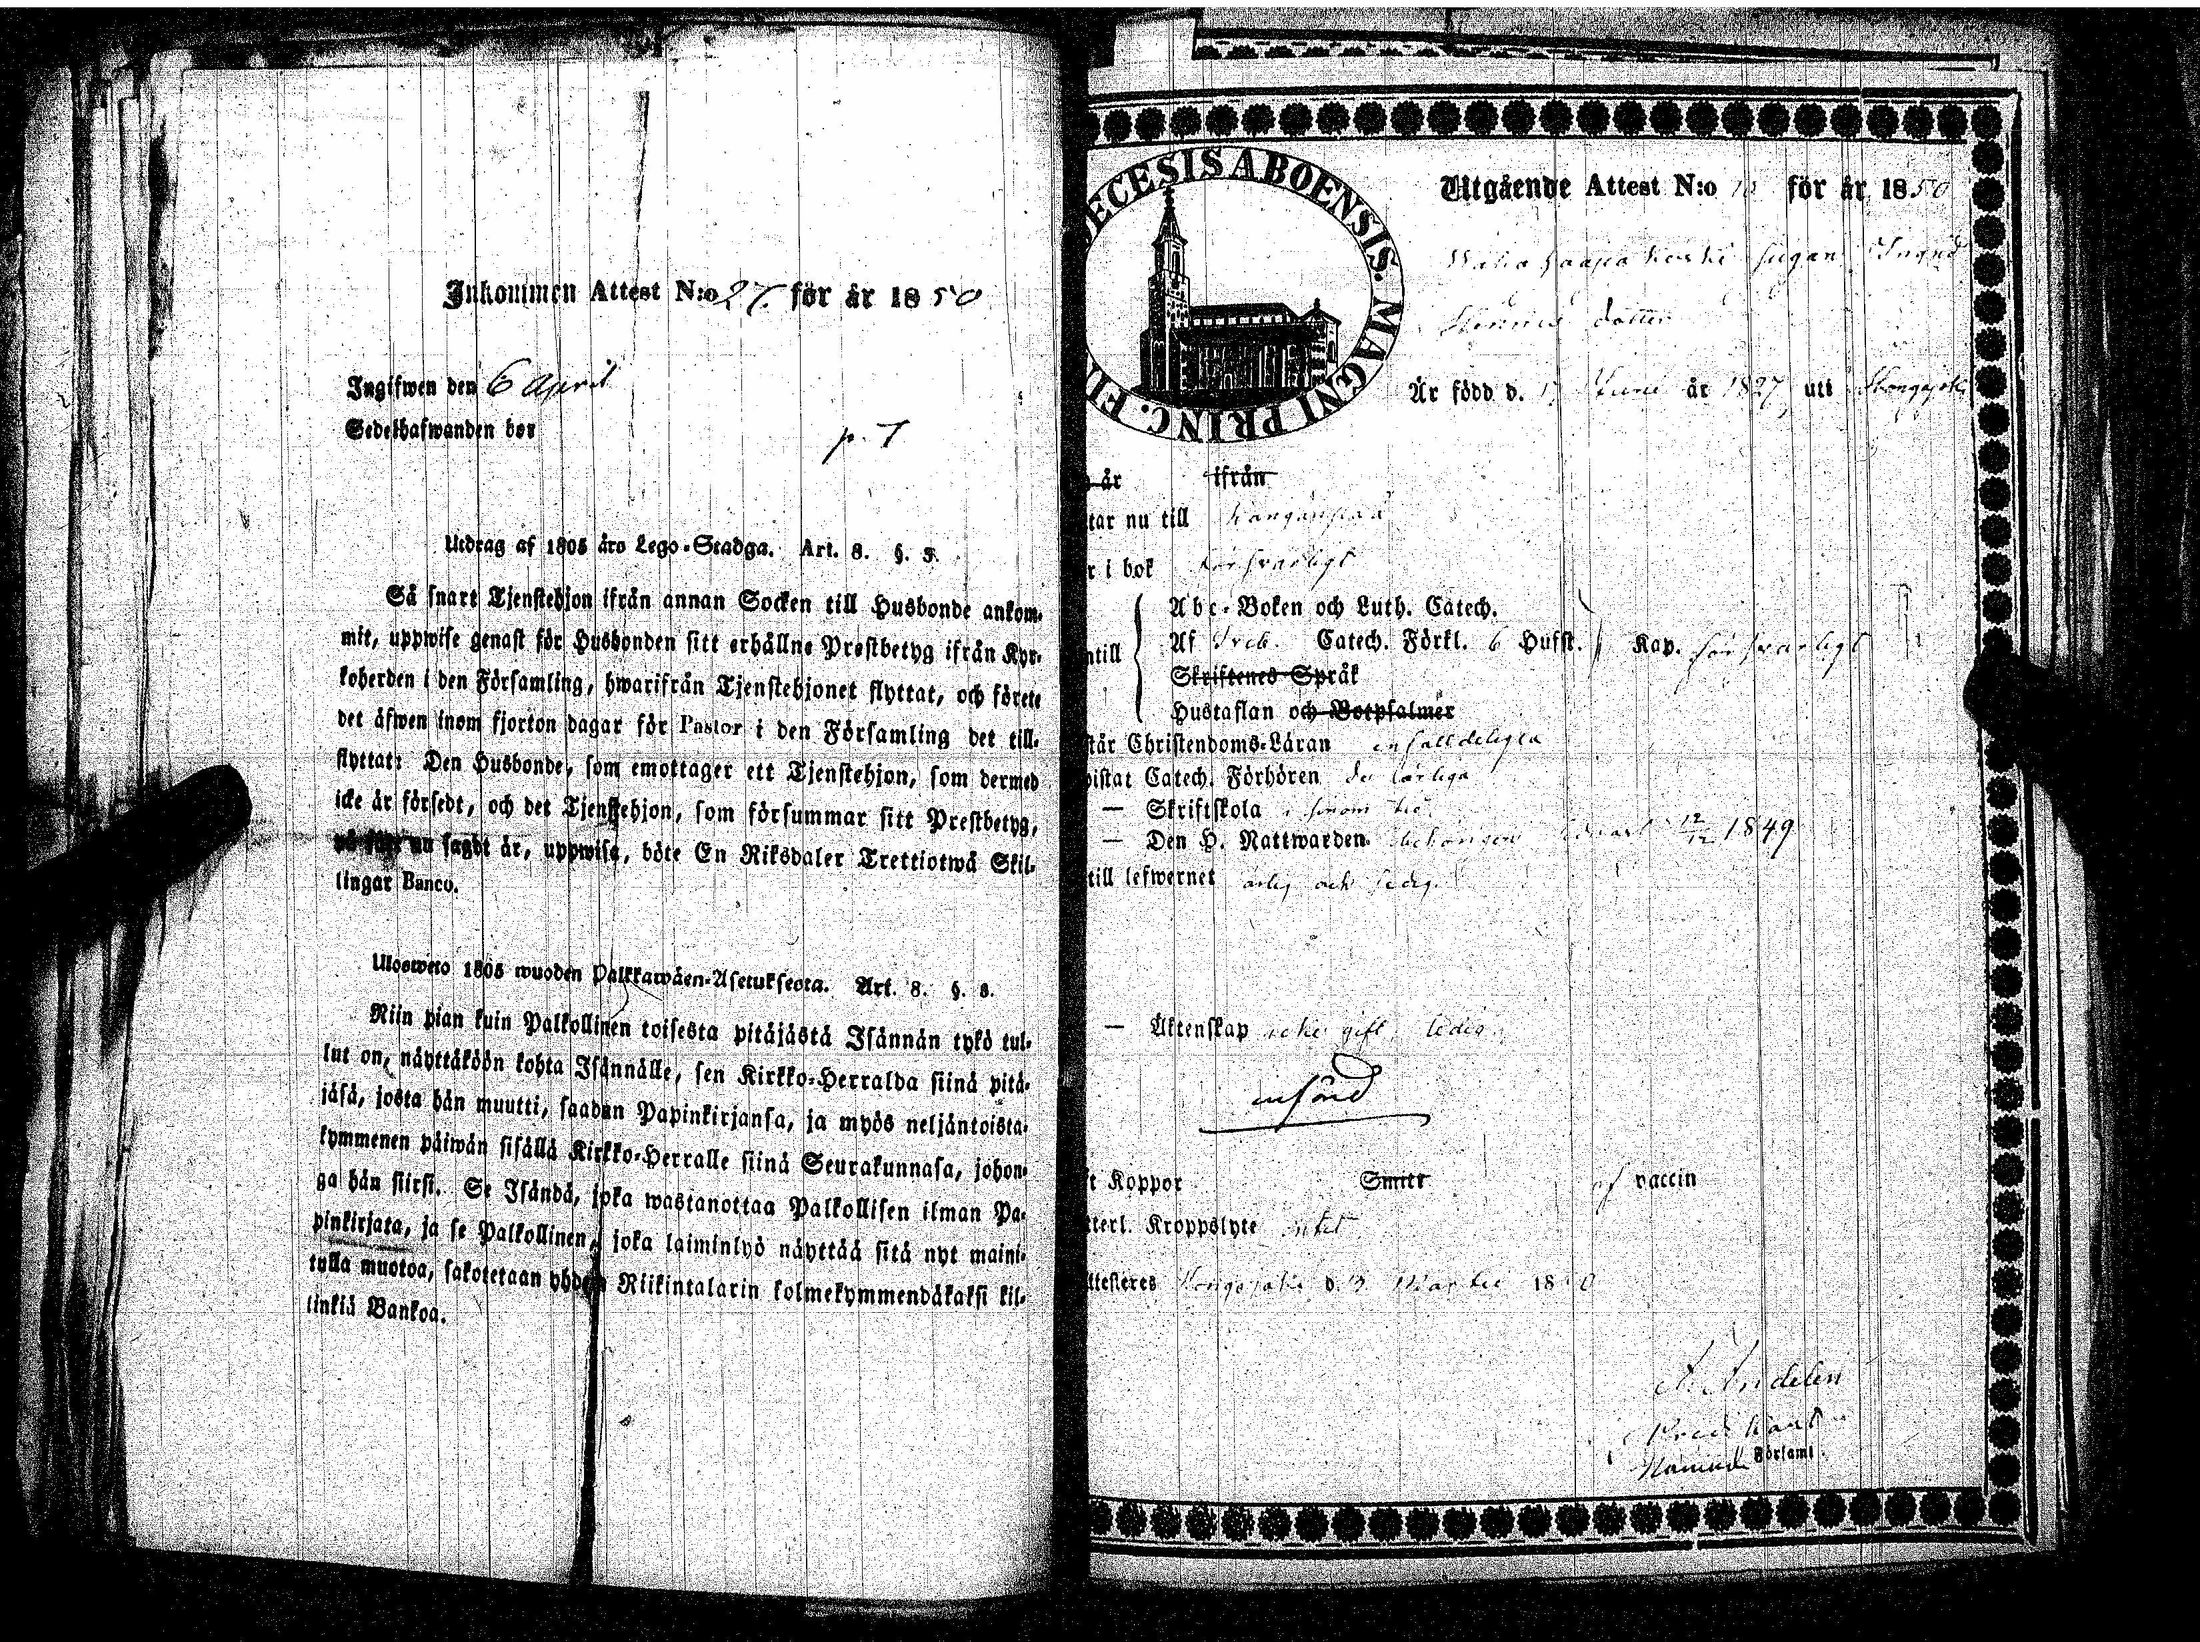 Inkommen Attest N:o 27. för år 1850
Ingifwen den 6 April
Sedelhafwanden bor
p. 7
Utdrag af 1805 års Lego-Stadga. Art. 8. §. 3.
Så snart Tjenstehjon ifrån annan Socken till Husbonde ankom-
mit, uppwise genast för Husbonden sitt erhållne Prestbetyg ifrån Kyr-
koherden i den Församling, hwarifrån Tjenstehjonet flyttat, och förete
det äfwen inom fjorton dagar för Pastor i den Församling det till-
flyttat: Den Husbonde, som emottager ett Tjenstehjon, som dermed
icke är försedt, och det Tjenstehjon, som försummar sitt Prestbetyg,
på sätt nu sagdt är, uppwisa, böte En Riksdaler Trettiotwå Skil-
lingar Banco.
Ulosweto 1805 wuoden Palkkawäen-Asetuksesta. Art. 8. §. 3.
Niin pian kuin Palkollinen toisesta pitäjästä Isännän tykö tul-
lut on, näyttäköön kohta Isännälle, sen Kirkko-Herralda siinä pitä-
jäsä, josta hän muutti, saadun Papinkirjansa, ja myös neljäntoista-
kymmenen päiwän sisällä Kirkko-Herralle siinä Seurakunnasa, johon-
ga hän siirsi. Se Isändä, joka wastanottaa Palkollisen ilman Pa-
pinkirjata, ja se Palkollinen, joka laiminlyö näyttää sitä nyt maini-
tulla muotoa, sakotetaan yhden Riikintalarin kolmekymmendäkaksi kil-
linkiä Bankoa.
ECESIS ABOENSIS. MAGNI PRINC. FI
Utgående Attest N:o för år 1850
pigan
dotter
Är född d. 17 Juni år 1827 uti
år ifrån
tar nu till
r i bok försvarligt
Abc-Boken och Luth. Catech.
ntill Af Sveb. Catech. Förkl. 6 Hufst. Kap. försvarligt
Skriftenes Språk
Hustaflan och Botpsalmer
står Christendoms-Läran enfalldeligen
vistat Catech. Förhören
— Skriftskola i sinom tid
— Den H. Nattwarden 12/12 1849
till lefwernet ärlig och sedig.
— Äktenskap icke gift, ledig
ft Koppor Smitt af vaccin
tterl. Kroppslyte intet
ttesteres d. Martii 1850
Församl.